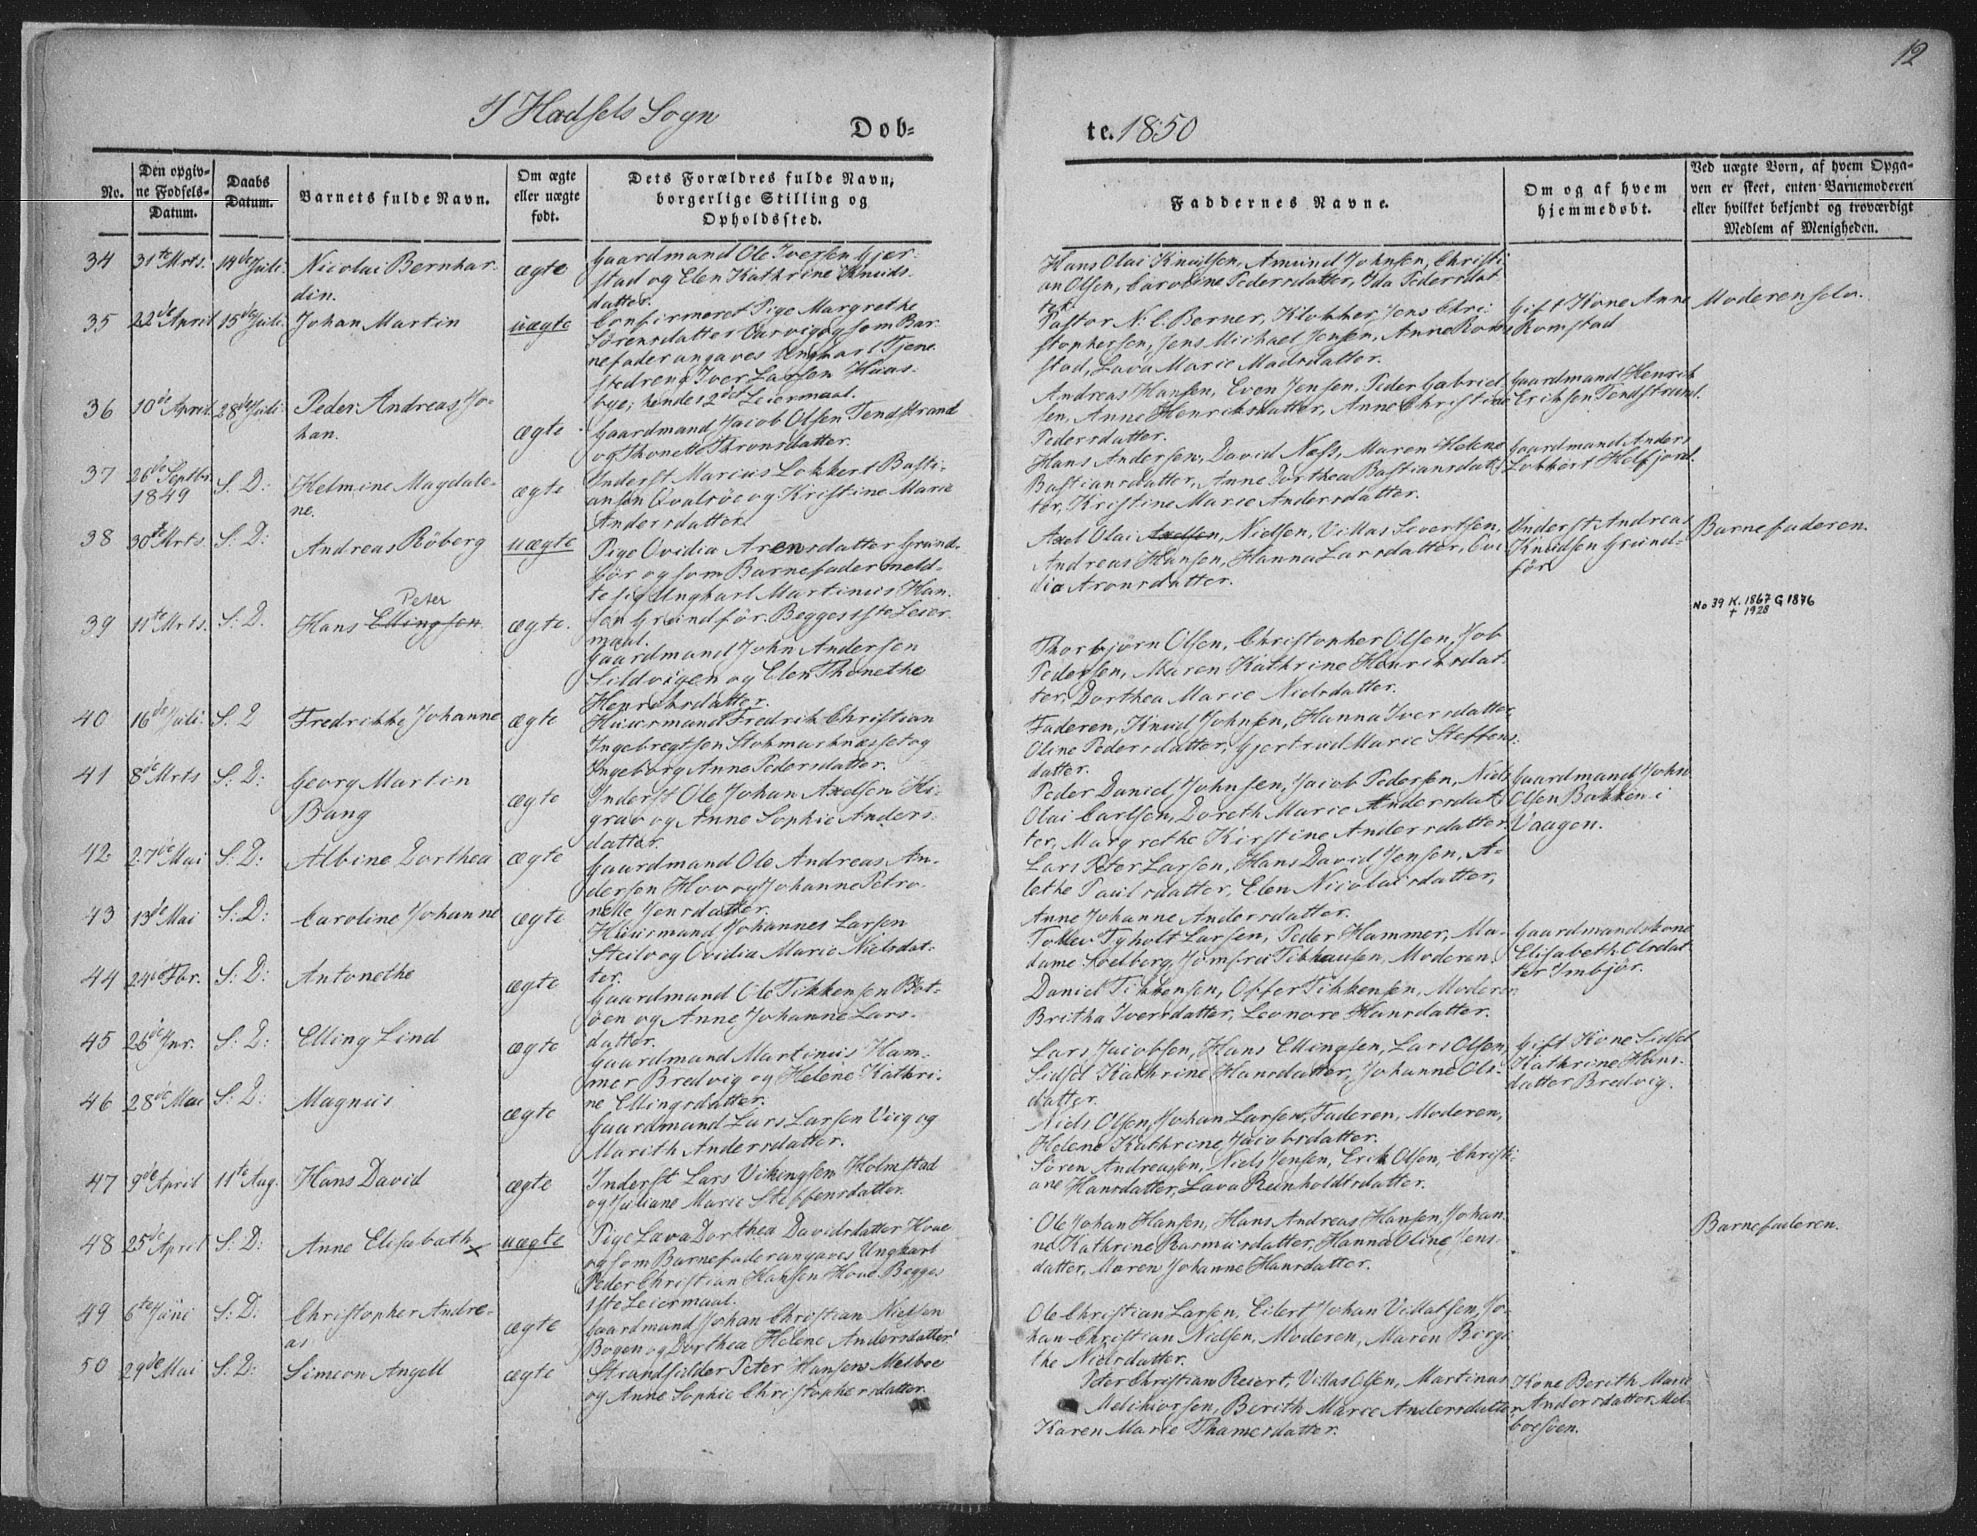 12
I Hadsels Sogn
Dob=
te. 1850
No.
Den opgiv=
ne Fodsels=
Datum.
Daabs
Datum.
Barnets fulde Navn.
Om ægte
eller uægte
født.
Dets Forældres fulde Navn,
borgerlige Stilling og
Opholdssted.
Faddernes Navne.
Om og af hvem
hjemmedobt.
Ved uægte Born, af hvem Opga=
ven er skeet, enten Barnemoderen
eller hvilket bekjendt og troværdigt
Medlem af Menigheden.
34 31te Mrts. 14de Juli. Nicolai Bernhar-
din.
ægte
Gaardmand Ole Iversen Gjer-
stad og Elen Kathrine Knuds-
datter.
Hans Olai Knudsen, Amund Johnsen, Christi-
an Olsen, Caroline Pedersdatter, Ida Pedersdat-
ter.
35 22de April 15de Juli. Johan Martin
uægte
Confirmeret Pige Margrethe
Sørensdatter og som Bar-
nefader angaves Ungkarl Tjene-
stedreng Iver Larsen Huus-
bye; hendes 2det Leiermaal.
Pastor N. C. Borner, Klokker Jens Chri-
stophersen, Jens Michael Jensen, Anne Rom-
stad, Lava Marie Madsdatter.
Gift Kone Anne
Romstad
Moderen selv.
36 10de April 28de Juli. Peder Andreas Jo-
han.
ægte
Gaardmand Jacob Olsen Tendstrand
og Thonette Thronsdatter.
Andreas Hansen, Even Jensen, Peder Gabriel-
sen, Anne Henriksdatter, Anne Christine
Pedersdatter.
Gaardmand Henrik
Eriksen Tendstrand.
37 26de Septbr.
1849
S. D: Helmine Magdale-
ne.
ægte
Inderst Marcus Lokkert Basti-
ansen Qvalsöe og Kristine Marie
Andersdatter.
Hans Andersen, David Næss, Maren Helene
Bastiansdatter, Anne Dorthea Bastiansdat-
ter, Kristine Marie Andersdatter.
Gaardmand Anders
Lokkert Helfjord.
38 30te Mrts. S. D: Andreas Röberg
uægte
Pige Ovidia Arensdatter Grund-
för og som Barnefader meld-
te sig Ungkarl Martinus Han-
sen Grundför. Begges 1ste Leier-
maal.
Axel Olai Axelsen, Nielsen, Villas Sivertsen,
Andreas Hansen, Hanna Larsdatter, Ovi-
dia Aronsdatter.
Inderst Andreas
Knudsen Grund-
för
Barnefaderen.
39 11te Mrts. S. D. Peter
Hans Ellingsen
ægte.
Gaardmand John Andersen
Sildvigen og Elen Thonethe
Henriksdatter.
Thorbjörn Olsen, Christopher Olsen, Job
Pedersen, Maren Kathrine Henriksdat-
ter, Dorthea Marie Nielsdatter.
No 39 K. 1867 G 1876
+ 1928
40 16de Juli. S. D Fredrikke Johanne
ægte
Huusmand Fredrik Christian
Ingebregtsen Stokmarknæsset og
Ingeborg Anne Pedersdatter.
Faderen, Knud Johnsen, Hanna Iversdatter,
Oline Pedersdatter, Gjertrud Marie Steffens-
datter.
41 8de Mrts S. D: Georg Martin
Bang
ægte
Inderst Ole Johan Axelsen Hi-
grav og Anne Sophie Anders-
datter.
Peder Daniel Johnsen, Jacob Pedersen, Niels
Olai Carlsen, Doreth Marie Andersdat-
ter, Margrethe Kirstine Andersdatter.
Gaardmand John
Olsen Bakken i
Vaagen.
42 27de Mai S. D: Albine Dorthea
ægte
Gaardmand Ole Andreas An-
dersen Hov og Johanne Petro-
nelle Jensdatter.
Lars Peter Larsen, Hans David Jensen, A-
lethe Paulsdatter, Elen Nicolaisdatter,
Anne Johanne Andersdatter.
43 13de Mai S: D: Caroline Johanne
ægte
Huusmand Johannes Larsen
Steilo og Ovidia Marie Nielsdat-
ter.
Tollev Tyholt Larsen, Peder Hammer, Ma-
dame Soelberg, Jomfru Tikkausen, Moderen.
Gaardmandskone
Elisabeth Olsdat-
ter Imbjör.
44 24de Fbr. S: D: Antonethe
ægte
Gaardmand Ole Tikkensen Böt-
öen og Anne Johanne Lars-
datter.
Daniel Tikkensen, Offer Tikkensen, Moderen
Britha Iversdatter, Leonore Hansdatter.
45 26de Jnr. S: D: Elling Lind
ægte
Gaardmand Martinus Ham-
mer Bredvig og Helene Kathri-
ne Ellingsdatter.
Lars Jacobsen, Hans Ellingsen, Lars Olsen,
Sidsel Kathrine Hansdatter, Johanne Ols-
datter.
Gift Kone Sidsel
Kathrine Hans-
datter Bredvig.
46 28de Mai S: D: Magnus
ægte
Gaardmand Lars Larsen Viig og
Marith Andersdatter.
Niels Olsen, Johan Larsen, Faderen, Moderen,
Helene Kathrine Jacobsdatter.
47 9de April 11te Aug. Hans David
ægte
Inderst Lars Vikingsen Holmstad
og Juliane Marie Steffensdatter.
Sören Andreassen, Niels Jensen, Erik Olsen, Christi-
ane Hansdatter, Lava Reinholdtsdatter.
48 25de April S: D: Anne Elisabeth x
uægte
Pige Lava Dorthea Davidsdatter Hove
og som Barnefader angaves Ungkarl
Peder Christian Hansen Hove. Begges
1ste Leiermaal.
Ole Johan Hansen, Hans Andreas Hansen, Johan-
ne Kathrine Rasmusdatter, Hanna Oline Jens-
datter, Maren Johanne Hansdatter.
Barnefaderen.
49 6te Juni S: D: Christopher Andre-
as
ægte
Gaardmand Johan Christian Nielsen
Bogen og Dorthea Helene Andersdatter.
Ole Christian Larsen, Eilert Johan Villatsen, Jo-
han Christian Nielsen, Moderen, Maren Borgi-
the Nielsdatter.
50 29de Mai S: D: Simeon Angell
ægte
Strandsidder Peter Hansen Melboe
og Anne Sophie Christophersdatter.
Peter Christian Reiert, Villas Olsen, Martinus
Melchiorsen, Berith Marie Andersdatter
Karen Marie Thamesdatter.
Kone Berith Marie
Andersdatter Mel-
boesöen.